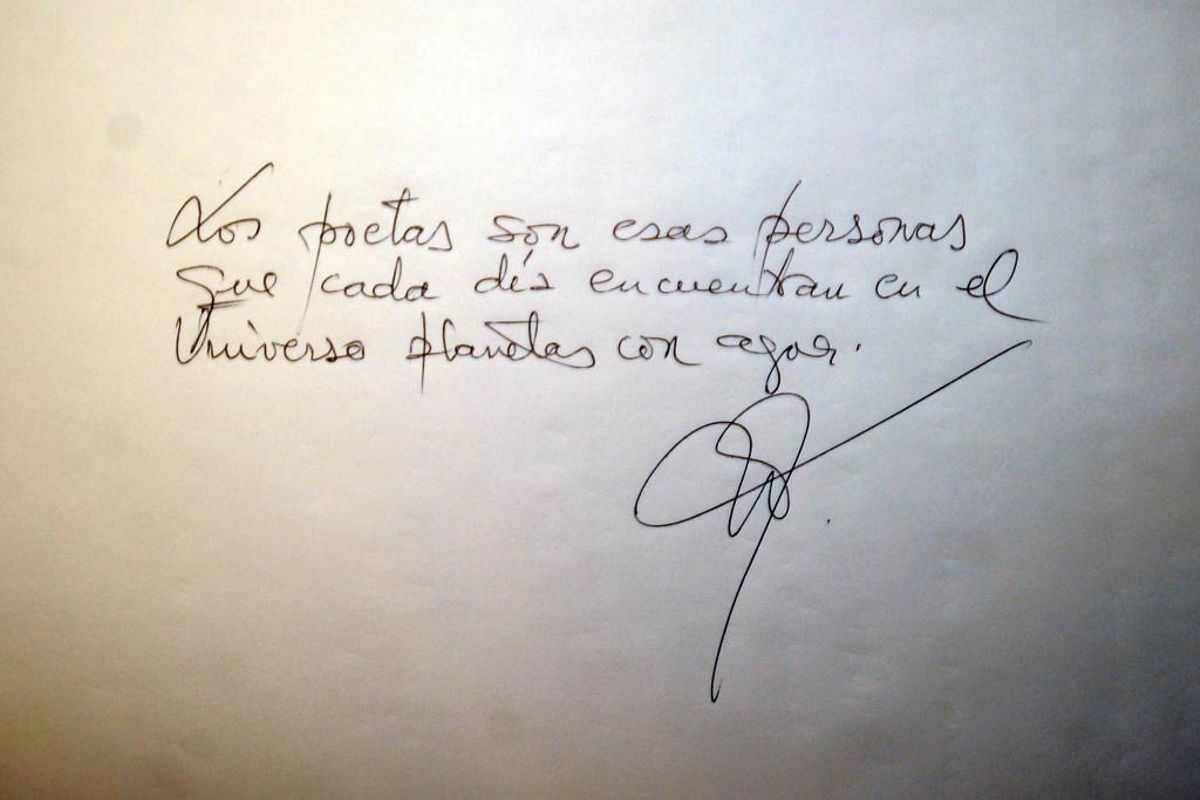 Los poetas son esas personas
que cada día encuentran en el
Universo planetas con agua.